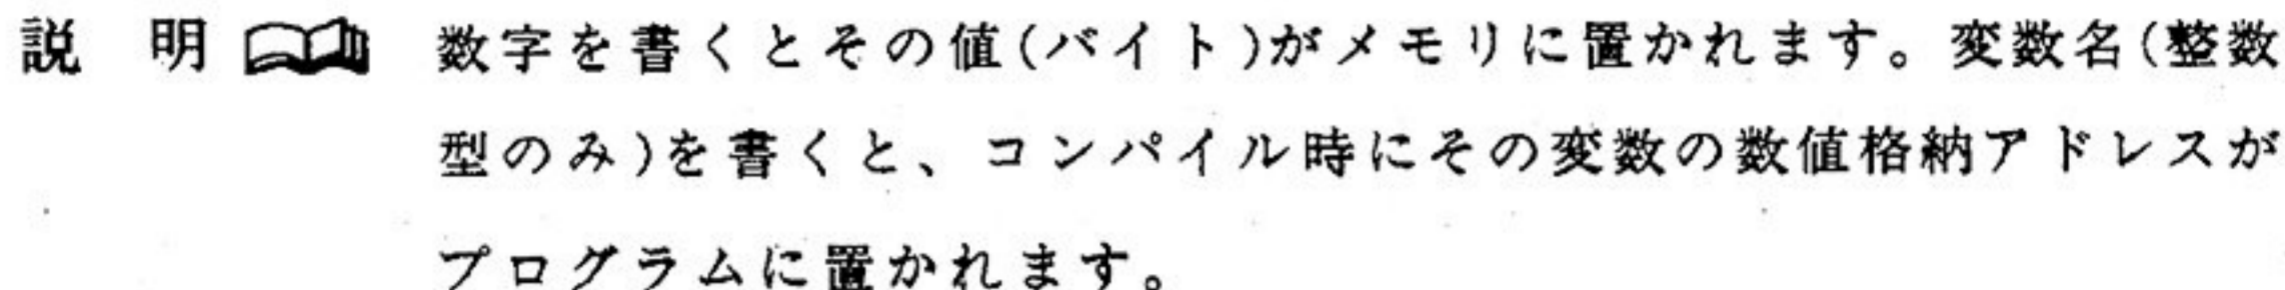 説　明 数字を書くとその値(バイト)がメモリに置かれます。変数名(整数
型のみ)を書くと、コンパイル時にその変数の数値格納アドレスが
プログラムに置かれます。